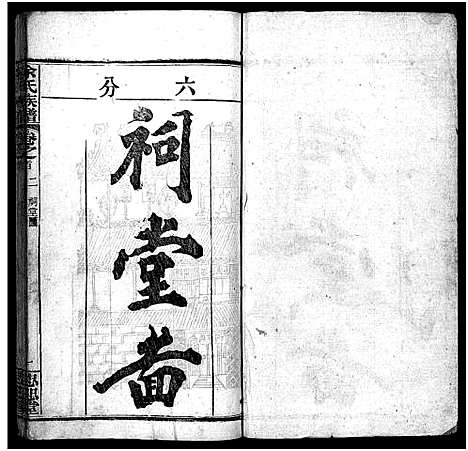 六分
祠堂啚
余氏族譜 卷之首二 祠堂圖